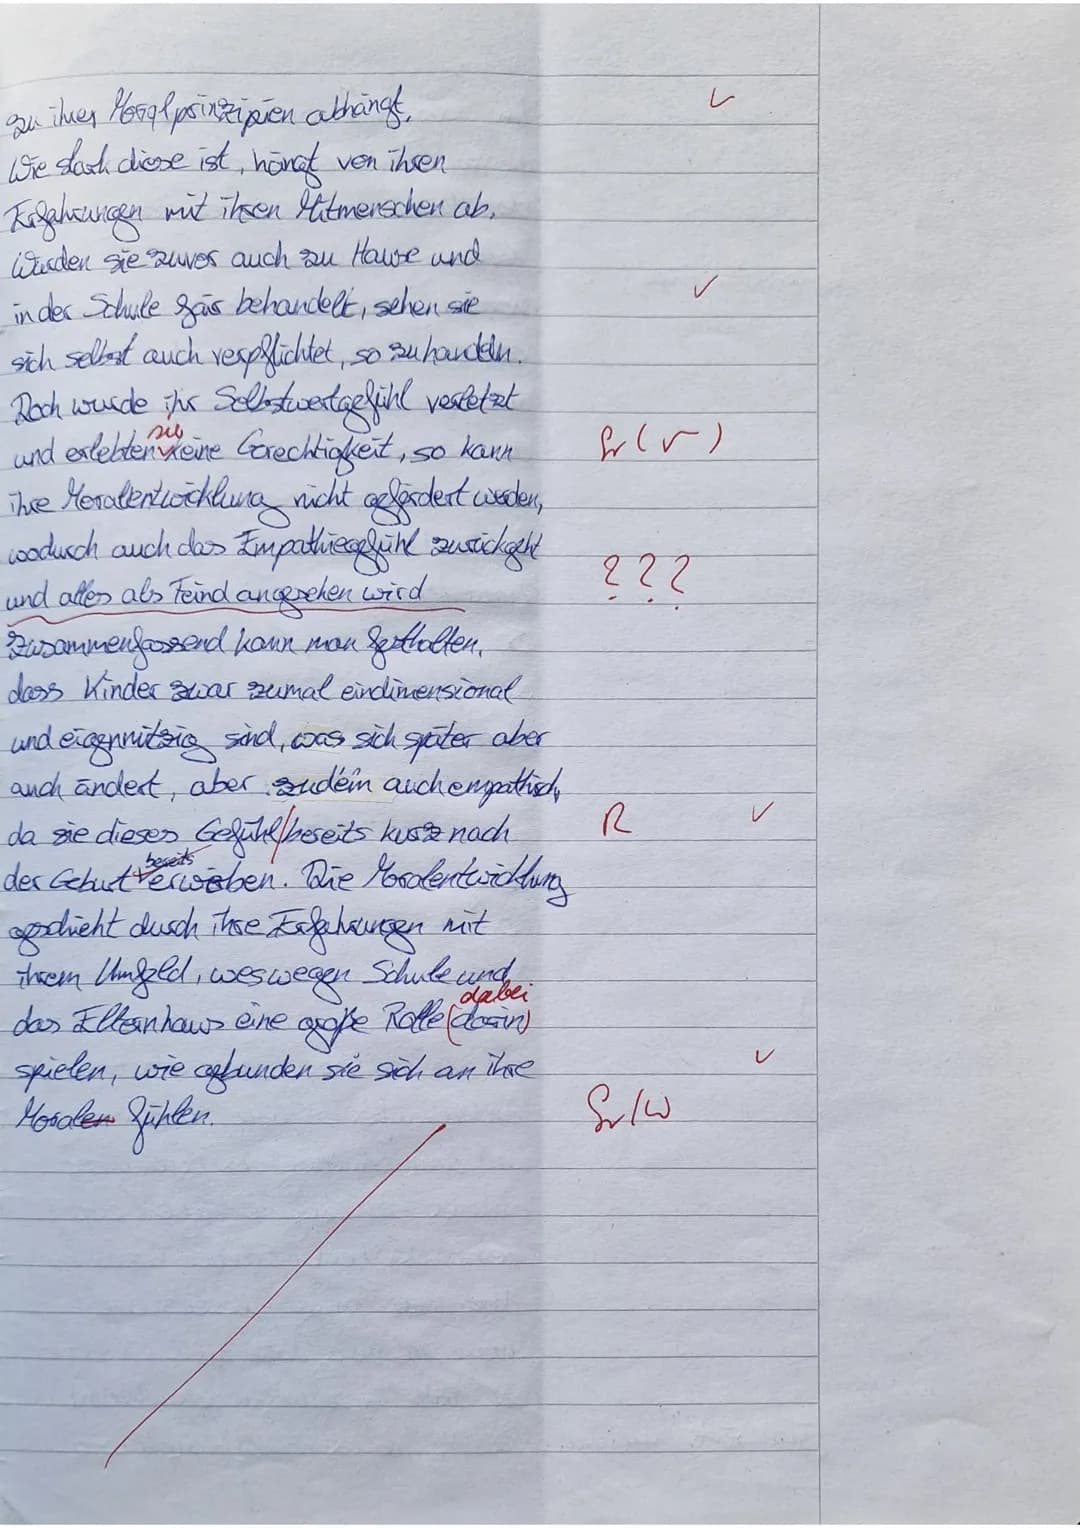 zu ihrer Moralprinzipien abhängt. ✓
Wie stark diese ist, hängt von ihren
Erfahrungen mit ihren Mitmenschen ab.
Wurden sie zuvor auch zu Hause und
in der Schule fair behandelt, sehen sie ✓
sich selbst auch verpflichtet, so zu handeln.
Doch wurde ihr Selbstwertgefühl verletzt
sie
und erlebten keine Gerechtigkeit, so kann Gr (✓)
ihre Moralentwicklung nicht gefördert werden,
wodurch auch das Empathiegefühl zurückgeht
und alles als Feind angesehen wird ???
Zusammenfassend kann man festhalten,
dass Kinder zwar zumal eindimensional
und eigennützig sind, was sich später aber
auch ändert, aber zudem auch empathisch,
da sie dieses Gefühl bereits kurz nach R ✓
bereits
der Geburt erwerben. Die Moralentwicklung
geschieht durch ihre Erfahrungen mit
ihrem Umfeld, weswegen Schule und
dabei
das Elternhaus eine große Rolle (darin)
spielen, wie gebunden sie sich an ihre ✓
Moralen fühlen. Gr/W